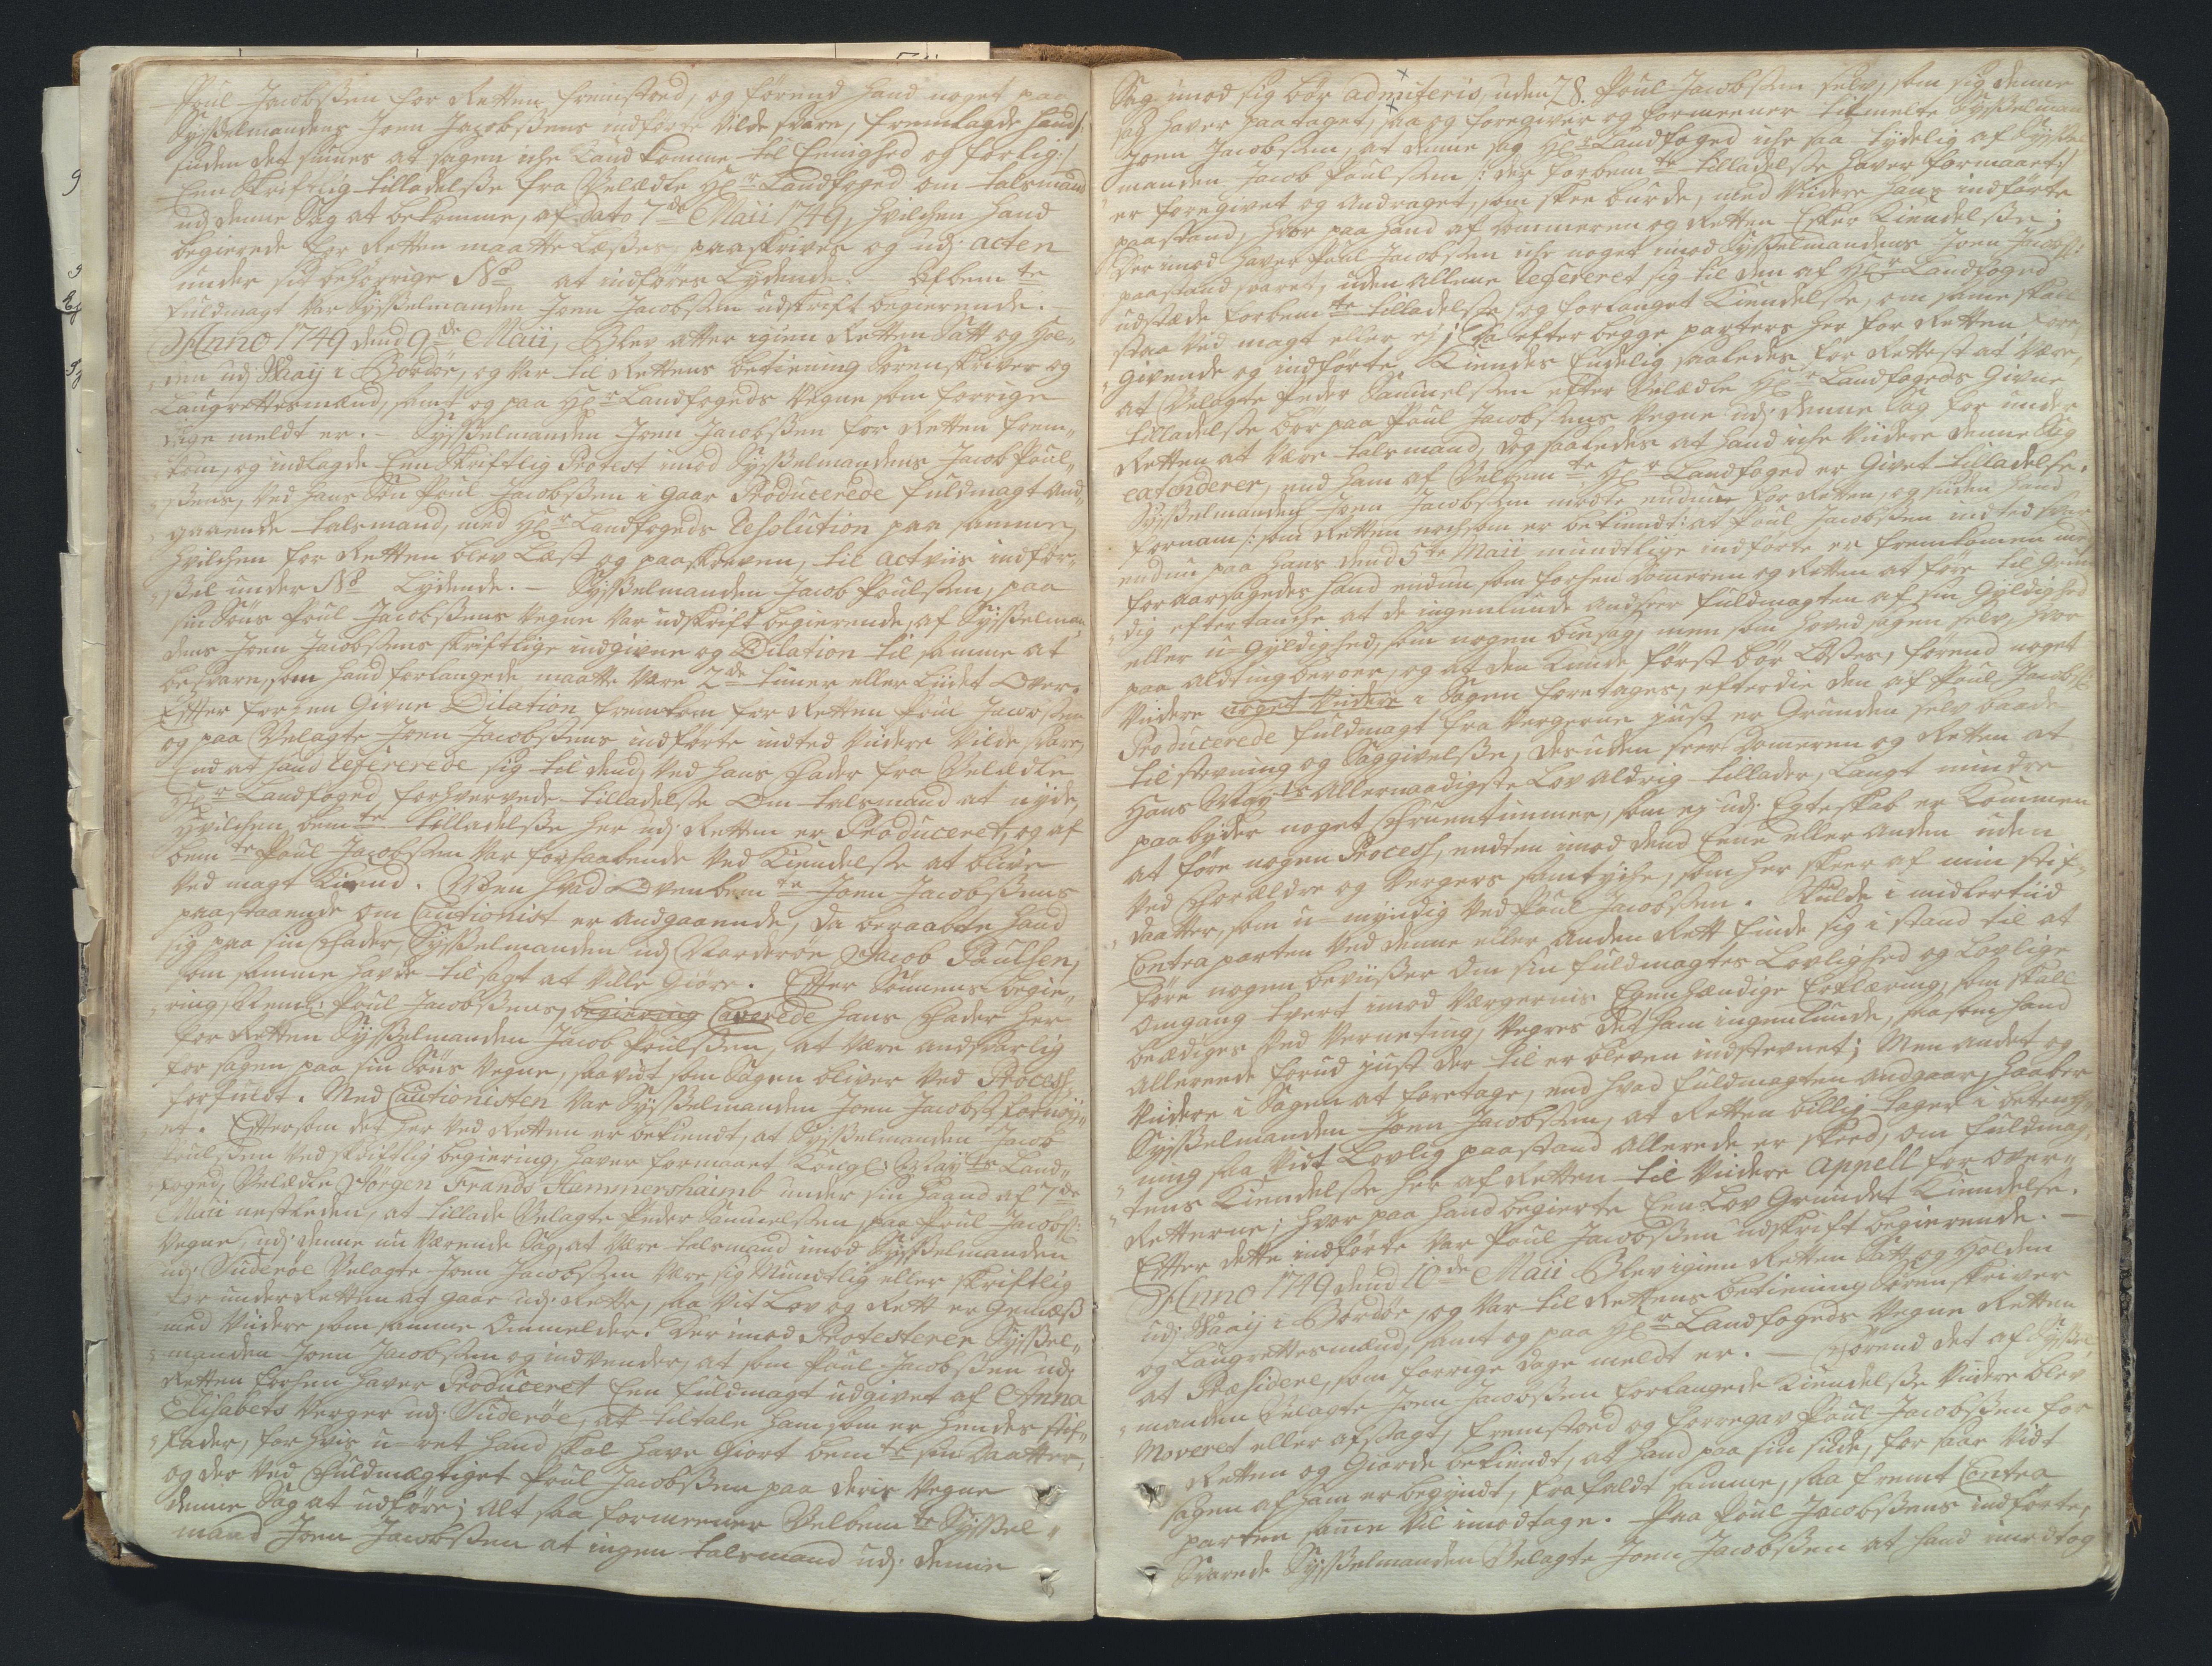 Poul Jacobsßen for Retten fremstoed, og förend hand noget paa
Sysßelmandens Joen Jacobsßens indförte vilde svare, fremlagde hand /:
siden det siunes at sagen iche kand komme til Eenighed og forlig :/
Een skriftlig tilladelsße fra Velædle Hr Landfoged om talsmand
udj denne Sag at bekomme, af Dato 7de Maii 1749, hvilchen hand
begierede for Retten maatte læsßes, paaskrives og udj acten
under sit behörrige No at indföres Lydende. Afbemte
fuldmagt var Sysßelmanden Joen Jacobsßen udskrift begierende.
Anno 1749 dend 9de Maii, Blev atter igien Retten Satt og Hol-
den udj Waaij i Bordöe, og var til Rettens betiening Sorenskriver og
Laugrettesmænd, samt og paa Hr Landfogeds Vegne som forrige
dage meldt er. - Sysßelmanden Joen Jacobsßen for Retten frem-
kom, og indlagde Een skriftlig Protest imod Sysßelmandens Jacob Poul-
sßens, ved hans Sön Poul Jacobsßen i gaar Producerede fuldmagt and-
gaaende talsmand, med Hr Landfogeds Resolution paa samme,
hvilchen for Retten blev Læst og paaskreven, til actviis indför-
sßel under No Lydende. - Sysßelmanden Jacob Poulsßen, paa
sin Söns Poul Jacobsßens Vegne var udskrift begierende, af Sysßelman-
dens Joen Jacobsßens skriftlige indgivne og Dilation til samme at
besvare, som hand forlangede maatte være 2de timer eller Liidet over.
Efter forhen Givne Dilation fremkom for Retten Poul Jacobsßen
og paa Velagte Joen Jacobsßens indförte indted viidere vilde svare,
End at hand refererede sig til dend, ved hans Fader fra Velædle
Hr Landfoged forhvervede tilladelsße om talsmand at nyde,
hvilchen bemte tilladelsße her udj Retten er Produceret, og af
bemte Poul Jacobsßen var forhaabende ved Kiendelsße at blive
ved magt Kiend. Men hvad ovenbemte Joen Jacobsßens
paastaaende om Cautionist er andgaaende, da beraabte hand
sig paa sin Fader, Sysßelmanden udj Norderöe Jacob Paulsen,
som samme havde tilsagt at ville giöre. Efter Sönnens begie-
ring, Neml: Poul Jacobsßens, begiering Caverede hans Fader her
for Retten Sysßelmanden Jacob Poulsßen, at være andsvarlig
for sagen paa sin Söns Vegne, saavidt som Sagen bliver ved Process
forfuldt. Med Cautionisten var Sysßelmanden Joen Jacobs: fornöy-
et. Eftersom det her ved Retten er bekiendt, at Sysßelmanden Jacob
Poulsßen ved skriftlig begiering, haver formaaet Kongl: Mayts Land-
foged, Velædle Jörgen Frands Hammershaimb under sin haand af 7de
Maii nestleden, at tillade Velagte Peder Samuelsßen, paa Poul Jacobs:
Vegne, udj denne nu værende Sag, at være talsmand imod Sysßelmanden
udj Suderöe Velagte Joen Jacobsßen være sig Mundtlig eller skriftlig
for underRetten at gaae udj Rette, saa vit Lov og Rett er Gemæsß
med viidere som samme ommelder. Der imod Protesterer Sysßel-
manden Joen Jacobsßen og indvender, at som Poul Jacobsßen udj
Retten forhen haver Produceret Een fuldmagt udgivet af Anna
Elisabets Verger udj Suderöe, at tiltale ham som er hendes stif-
Fader, for hvis u-ret hand skal have Giort bemte sin Daatter,
og der ved fuldmægtiget Poul Jacobsßen paa deris Vegne
denne Sag at udföre; alt saa formeener Velbemte Sysßel-
mand Joen Jacobsßen at ingen talsmand udj denne
Sag imod sig bör admiteris, uden 28. Poul Jacobsßen selv, som sig denne
sag haver paataget, saa og foregiver og formeener titmelte Sysßelmand
Joen Jacobsßen, at denne sag Hr Landfoged iche saa tydelig af Sysßel-
manden Jacob Poulsßen /: der forbemte tilladelsße haver formaaet :/
er foregivet og andraget, som skee burde, med viidere hans indförte
paastand, hvor paa hand af dommeren og Retten Esker Kiendelsße;
der imod haver Poul Jacobsßen iche noget imod Sysßelmandens Joen Jacobs:
paastand svaret, uden allene refereret sig til den af Hr Landfoged
udstæde forbemte tilladelsße, og forlanget Kiendelsße, om samme skal
staa ved magt eller ej; Da efter begge parters her for Retten fore-
givende og indförte, Kiendes Endelig saaledes for Rettest at være,
at Velagte Peder Samuelsßen efter Velædle Hr Landfogeds Givne
tilladelsße bör paa Poul Jacobsßens Vegne udj denne Sag for under
Retten at være talsmand, dog saaledes at hand iche viidere denne Sag
extenderer, end ham af Velbemte Hr Landfoged er Givet tilladelse.
Sysßelmanden Joen Jacobsßen mödte endnu for Retten, og siden hand
fornam /: som Retten noksom er bekiendt: at Poul Jacobsßen indted svar
endnu paa hans dend 5te Maii mundtlige indförte er fremkommen med
for aarsagedes hand endnu som forhen Domeren og Retten at före til Grun-
dig eftertanche at de ingenlunde andseer fuldmagten af sin Gyldighed
eller u-gyldighed, som nogen biesag, men som hovedsagen selv, hvor
paa alting beroer, og at den Knude först bör Löses, förend noget
viidere noget viidere i Sagen foretages, efterdie den af Poul Jacobsß:
Producerede fuldmagt fra Vergerne just er Grunden selv baade
til stevning og Saggivelsße, desuden seer Domeren og Retten at
Hans Mayts Allernaadigste Lov aldrig tillader, langt mindre
paabyder noget Fruentimmer, som ej udj Egteskab er kommen
at före nogen Process, endten imod dend Eene eller anden uden
ved Forældre og Vergers samtyche, som her skeer af min stif-
daatter, som u-myndig ved Poul Jacobsßen. Skulde i midlertiid
Contraparten ved denne eller anden Rett finde sig i stand til at
före nogen beviisßer om sin fuldmagtes Lovlighed og lovlige
omgang tvert imod Værgernis Egenhændige Erklæring, som skall
beædiges ved Vernerting, vegres det ham ingenlunde, saasom hand
allereede forud just der til er bleven indstevnet; Men andet og
viidere i Sagen at foretage, end hvad fuldmagten andgaar, haaber
Sysßelmanden Joen Jacobsßen, at Retten billig tager i betench-
ning saa vidt Lovlig paastand allerede er skeed, om fuldmag-
tens Kiendelsße her af Retten til viidere Appell for over-
Retterne; hvor paa hand begierte Een Lov Grundet Kiendelse.
Efter dette indförte var Poul Jacobsßen udskrift begierende. -
Anno 1749 dend 10de Maii Blev igien Retten Satt og Holden
udj Waaij i Bordöe, og var til Rettens betiening Sorenskriver
og Laugrettesmænd, samt og paa Hr Landfogeds Vegne Retten
at Præsidere, som forrige dage meldt er. - Förend det af Sysßel-
manden Velagte Joen Jacobsßen forlangede Kiendelsße viidere blev
Moveret eller afsagt, fremstoed og foregav Poul Jacobsßen for
Retten og Giorde bekiendt, at hand paa sin siide, for saa vidt
sagen af ham er begyndt, frafaldt samme, saa fremt Contra
parten same vil imodtage. Paa Poul Jacobsßens indförte,
Svarede Sysßelmanden Velagte Joen Jacobsßen at hand imodtog